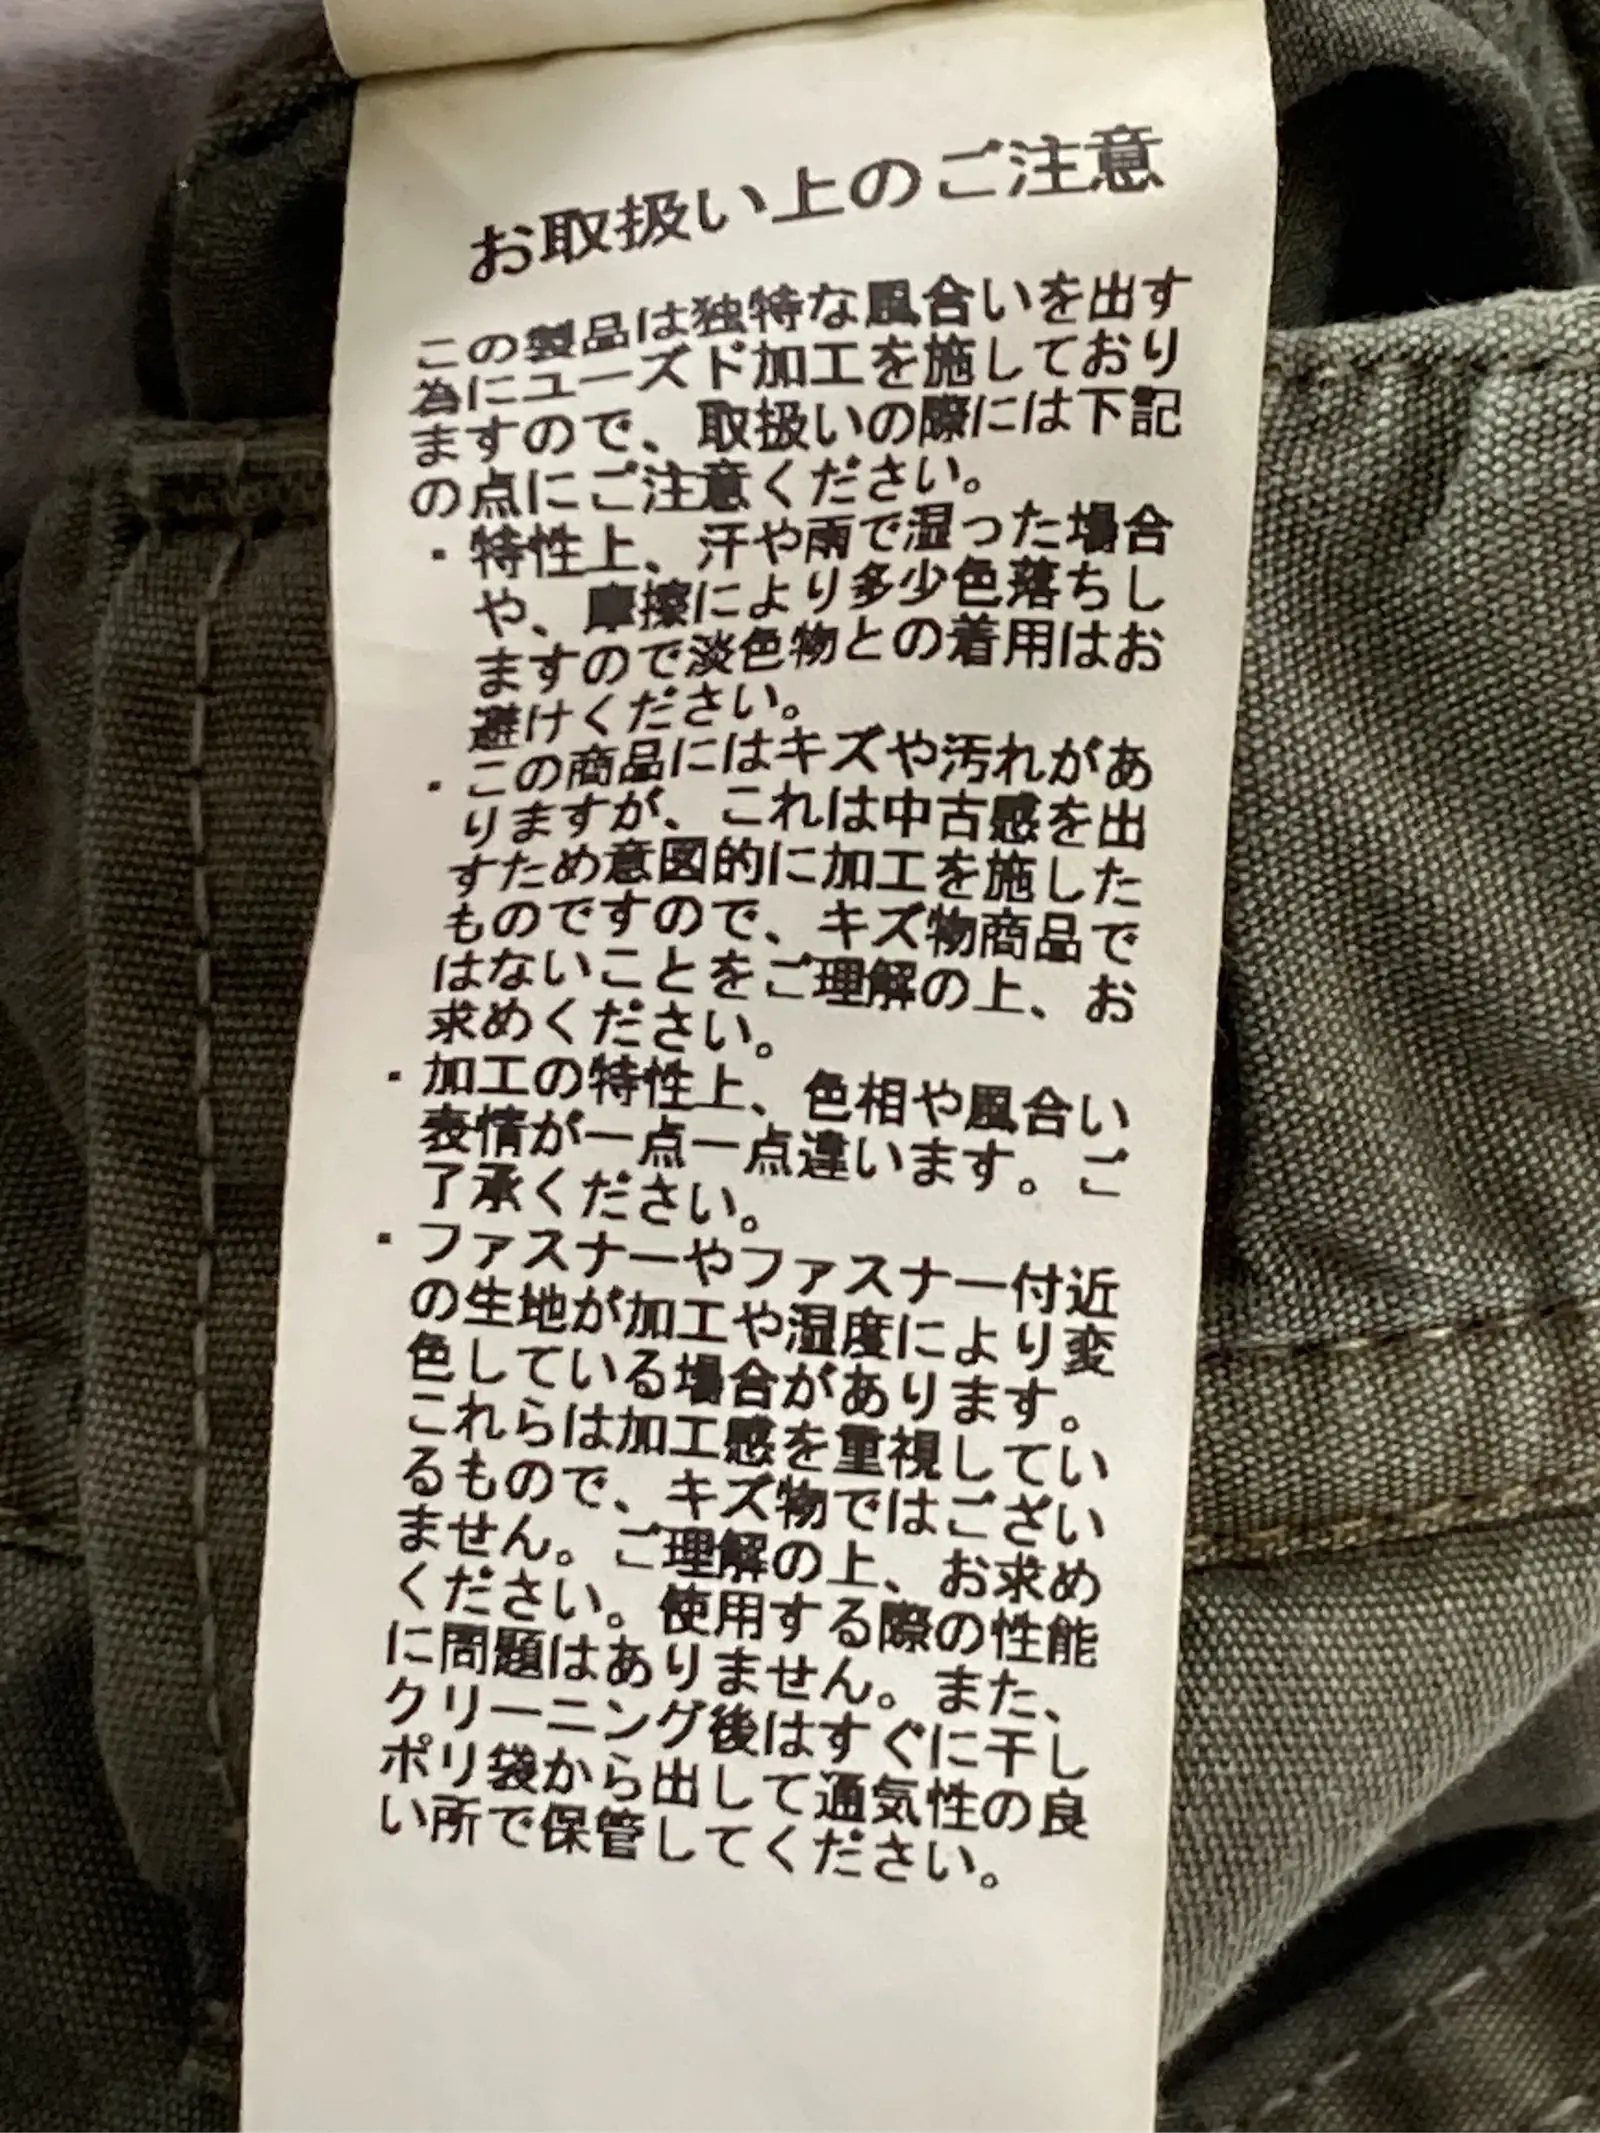 お取扱い上のご注意
この製品は独特な風合いを出す
為にユーズド加工を施しており
ますので、取扱いの際には下記
の点にご注意ください。
・特性上、汗や雨で湿った場合
や、摩擦により多少色落ちし
ますので淡色物との着用はお
避けください。
・この商品にはキズや汚れがあ
りますが、これは中古感を出
すため意図的に加工を施した
ものですので、キズ物商品で
はないことをご理解の上、お
求めください。
・加工の特性上、色相や風合い
表情が一点一点違います。ご
了承ください。
・ファスナーやファスナー付近
の生地が加工や湿度により変
色している場合があります。
これらは加工感を重視してい
るもので、キズ物ではござい
ません。ご理解の上、お求め
ください。使用する際の性能
に問題はありません。また、
クリーニング後はすぐに干し
ポリ袋から出して通気性の良
い所で保管してください。